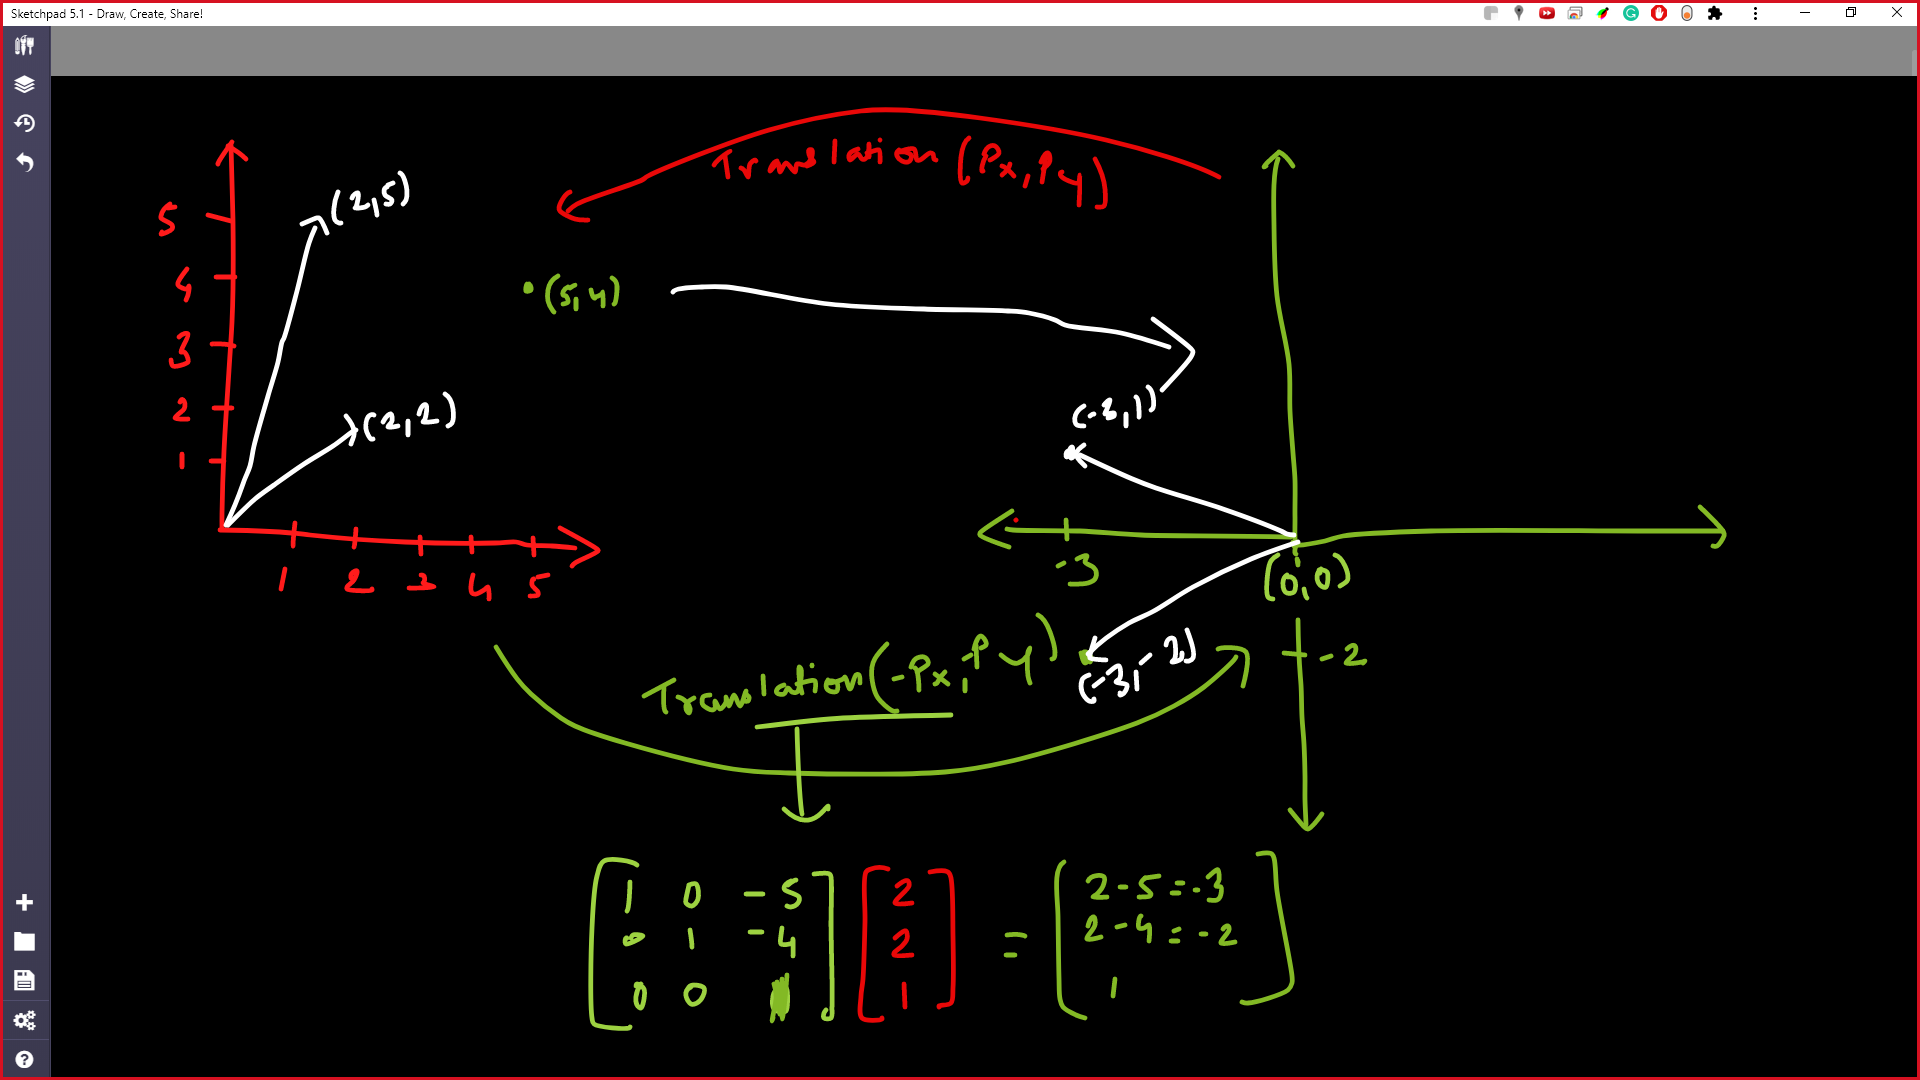 Sketchpad 5.1 - Draw, Create, Share!
Translation (Px, Py)
(2,5)
5
4
3
2
1
(5,4)
(2,2)
(-3,1)
1 2 3 4 5
-3
(0,0)
Translation (-Px, -Py)
(-3, -2)
-2
1 0 -5
0 1 -4
0 0
2
2
1
=
2-5=-3
2-4=-2
1